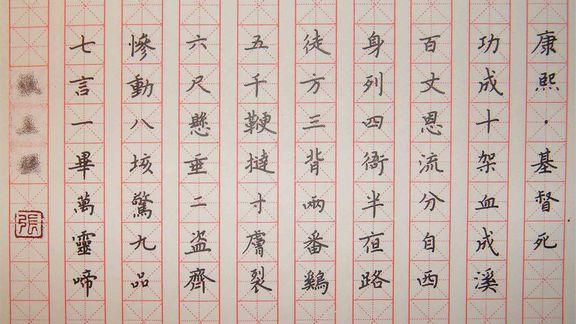 康熙·基督死
功成十架血成溪
百丈恩流分自西
身列四衙半夜路
徒方三背兩番鷄
五千鞭撻寸膚裂
六尺懸垂二盜齊
慘動八垓驚九品
七言一畢萬靈啼
張